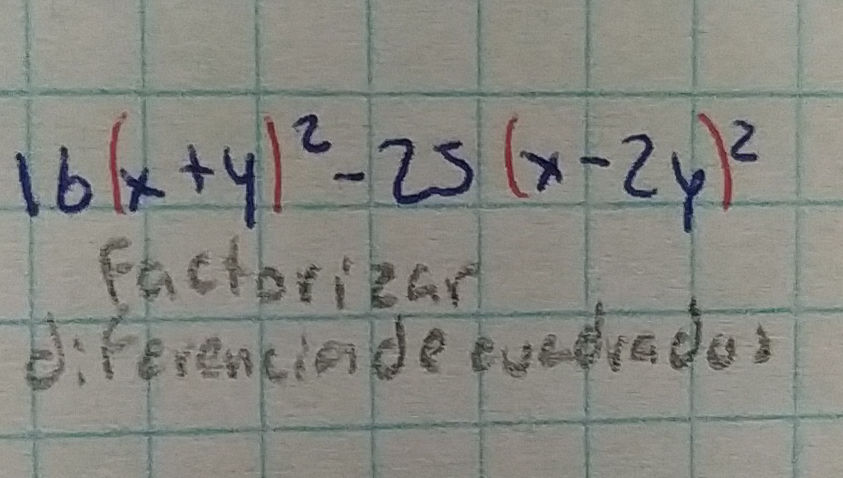 16(x+y)² - 25(x-2y)²
Factorizar
diferencia de cuadrados